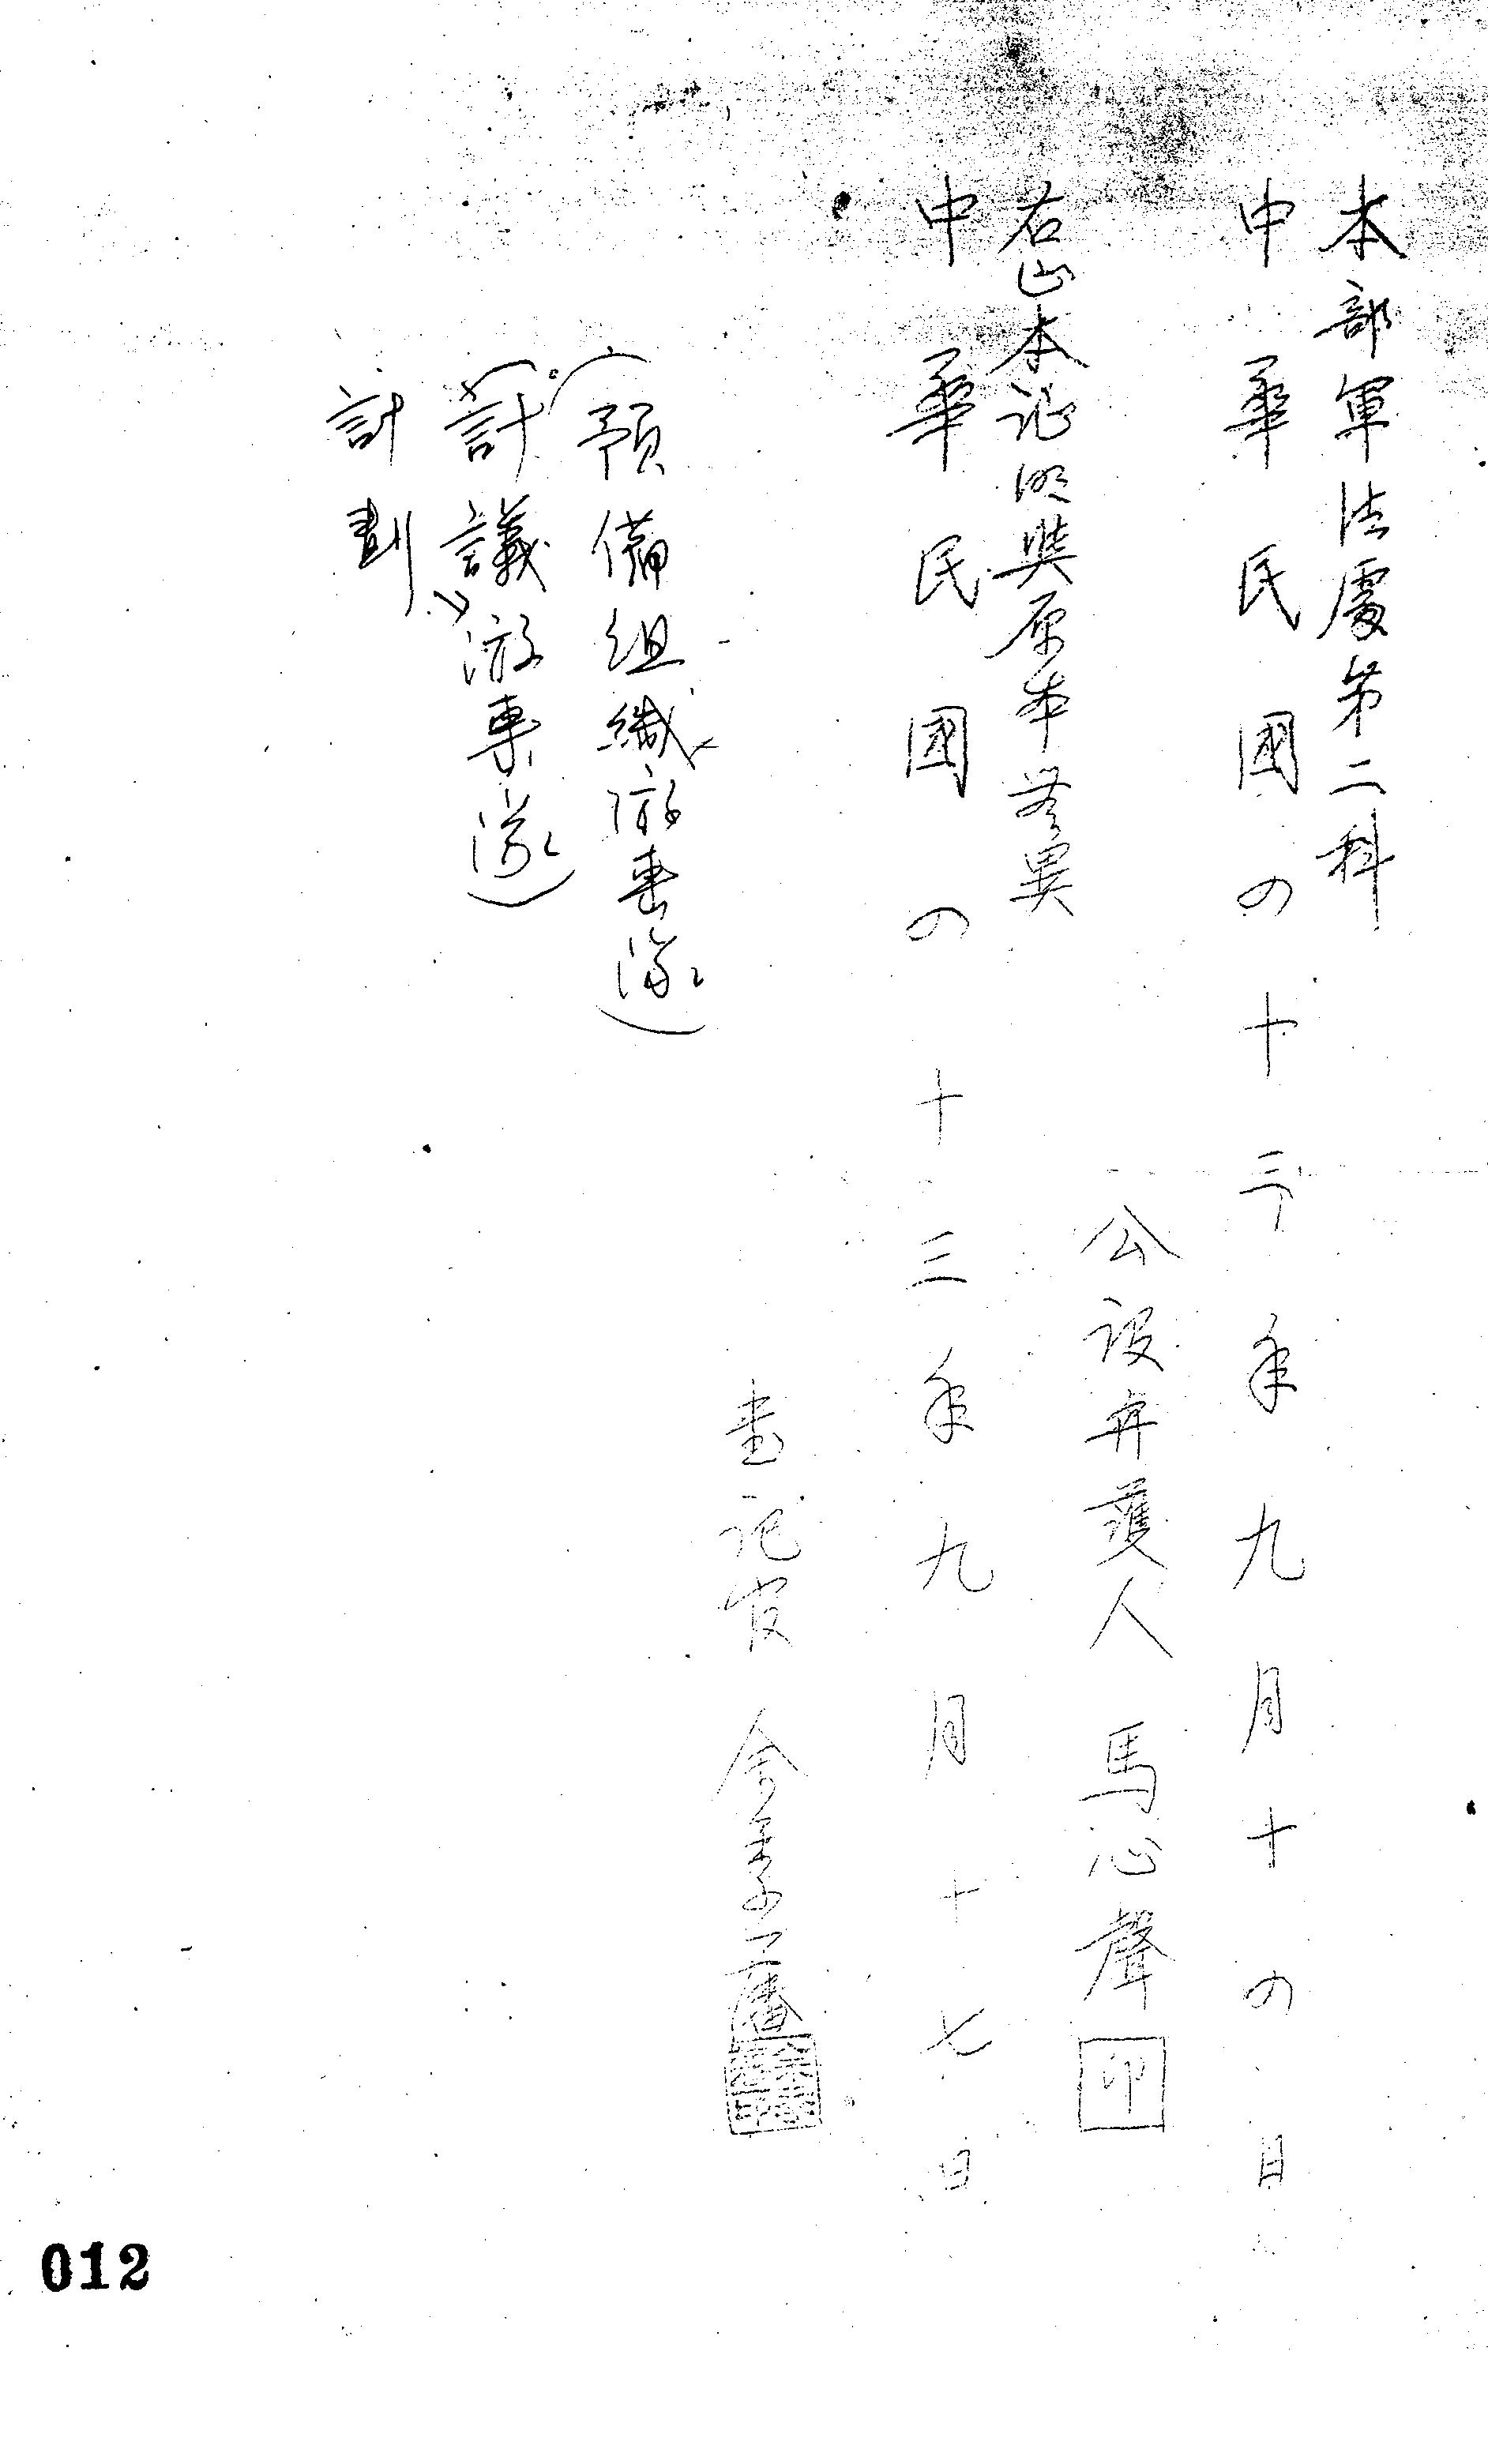 本部軍法處第二科
中華民國四十三年九月十四日
公設弁護人 馬心聲 印
右正本証明與原本無異
中華民國四十三年九月十七日
書記官
(預備組織游擊隊)
(計議游擊隊)
計劃
012